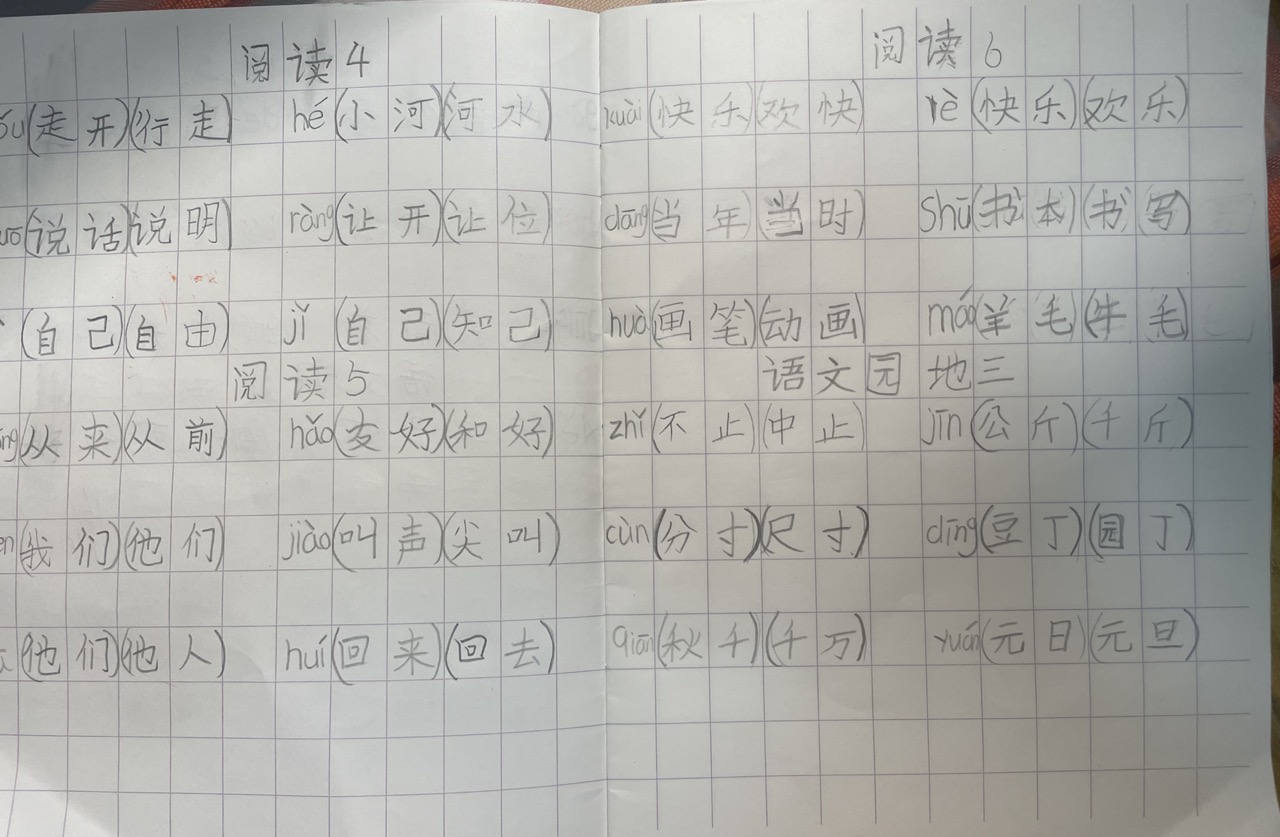 阅读4
(走开)(行走) hé(小河)(河水)
(说话)(说明) ràng(让开)(让位)
(自己)(自由) jǐ(自己)(知己)
阅读5
(从来)(从前) hǎo(友好)(和好)
(我们)(他们) jiào(叫声)(尖叫)
(他们)(他人) huí(回来)(回去)
阅读6
kuài(快乐)(欢快) lè(快乐)(欢乐)
dāng(当年)(当时) Shū(书本)(书写)
huà(画笔)(动画) máo(羊毛)(牛毛)
语文园地三
zhǐ(不止)(中止) jīn(公斤)(千斤)
cùn(分寸)(尺寸) dīng(豆丁)(园丁)
qiān(秋千)(千万) yuán(元日)(元旦)